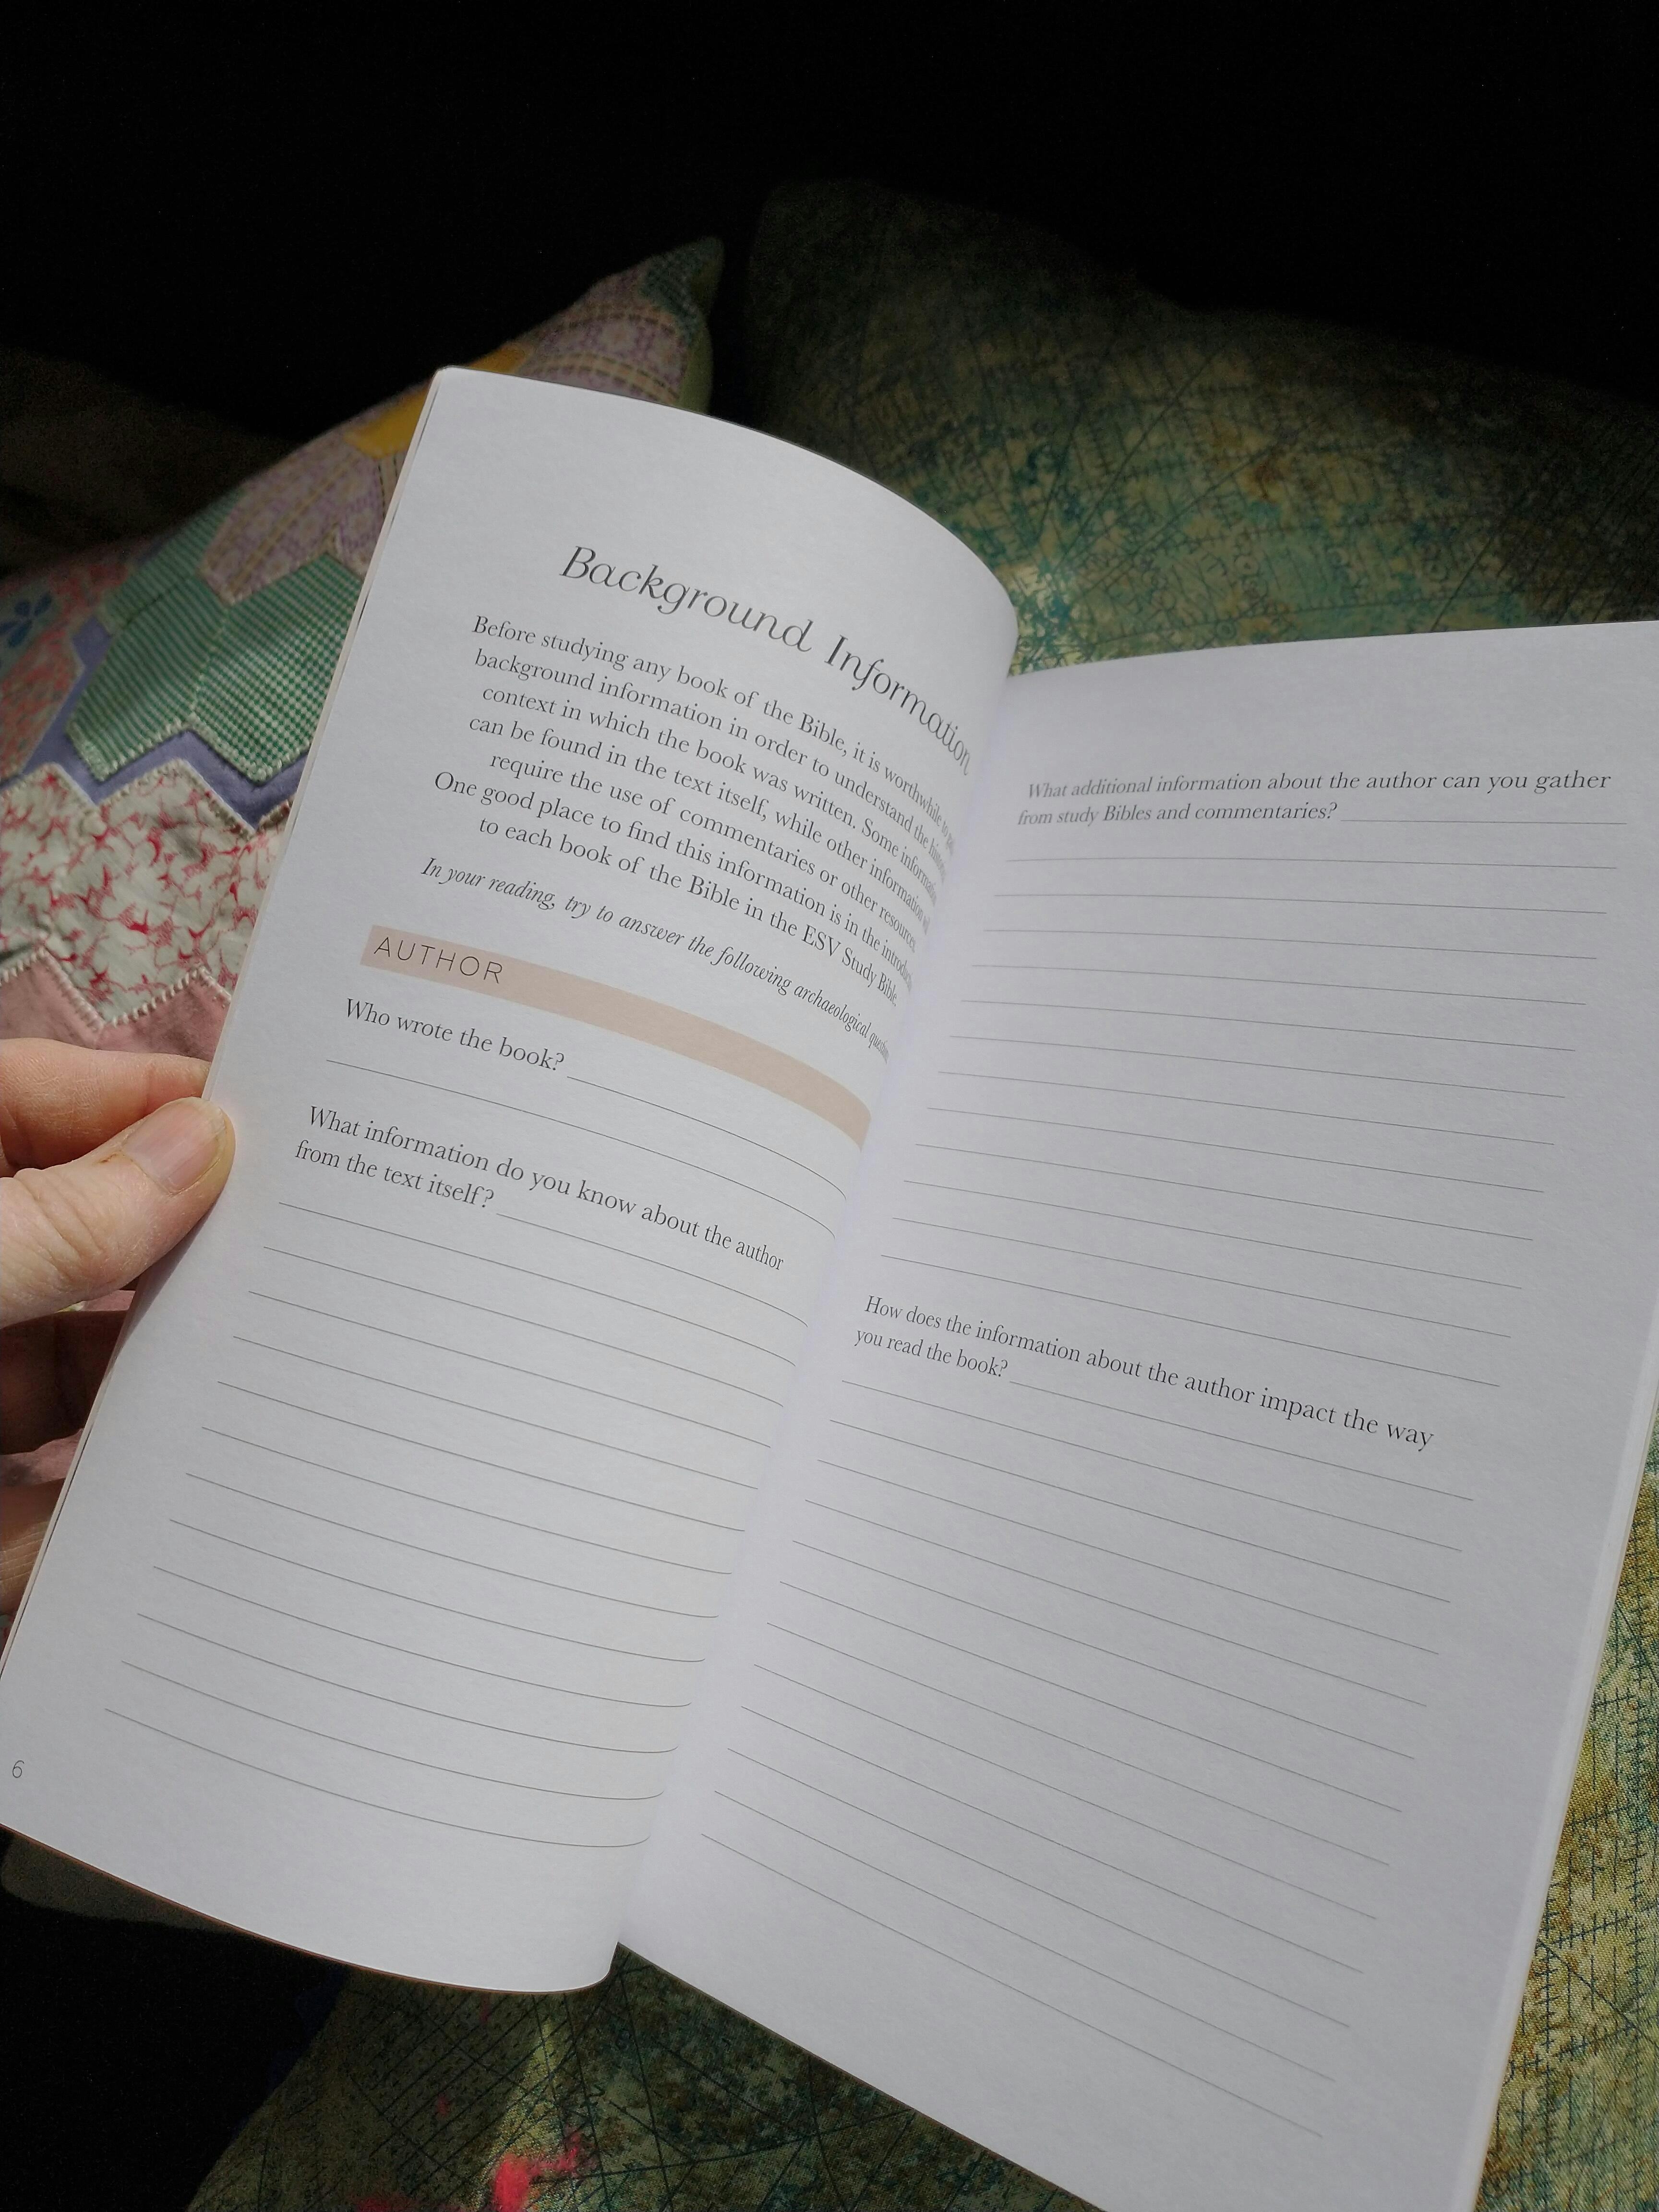 Background Information
Before studying any book of the Bible, it is worthwhile to
background information in order to understand the
context in which the book was written. Some information
can be found in the text itself, while other information
require the use of commentaries or other resources.
One good place to find this information is in the
to each book of the Bible in the ESV Study Bible.
In your reading, try to answer the following archaeological
AUTHOR
Who wrote the book?
What information do you know about the author
from the text itself?
6
What additional information about the author can you gather
from study Bibles and commentaries?
How does the information about the author impact the way
you read the book?